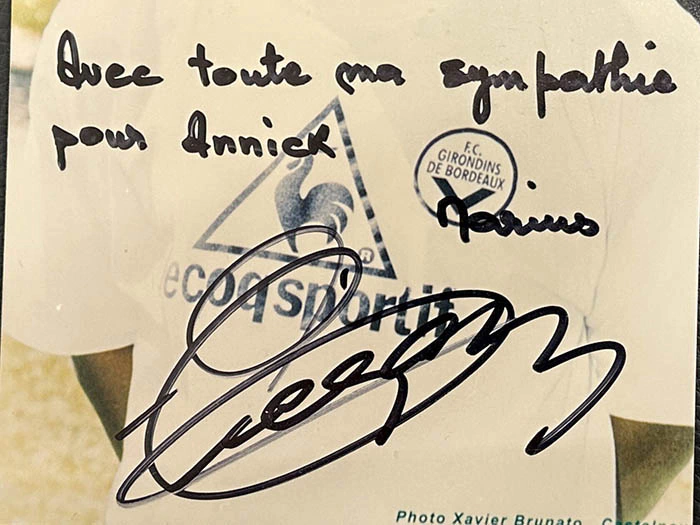 Avec toute ma sympathie
pour Annick
F.C.
GIRONDINS
DE BORDEAUX
Marius
ecoq sportif
®
Photo Xavier Brunato